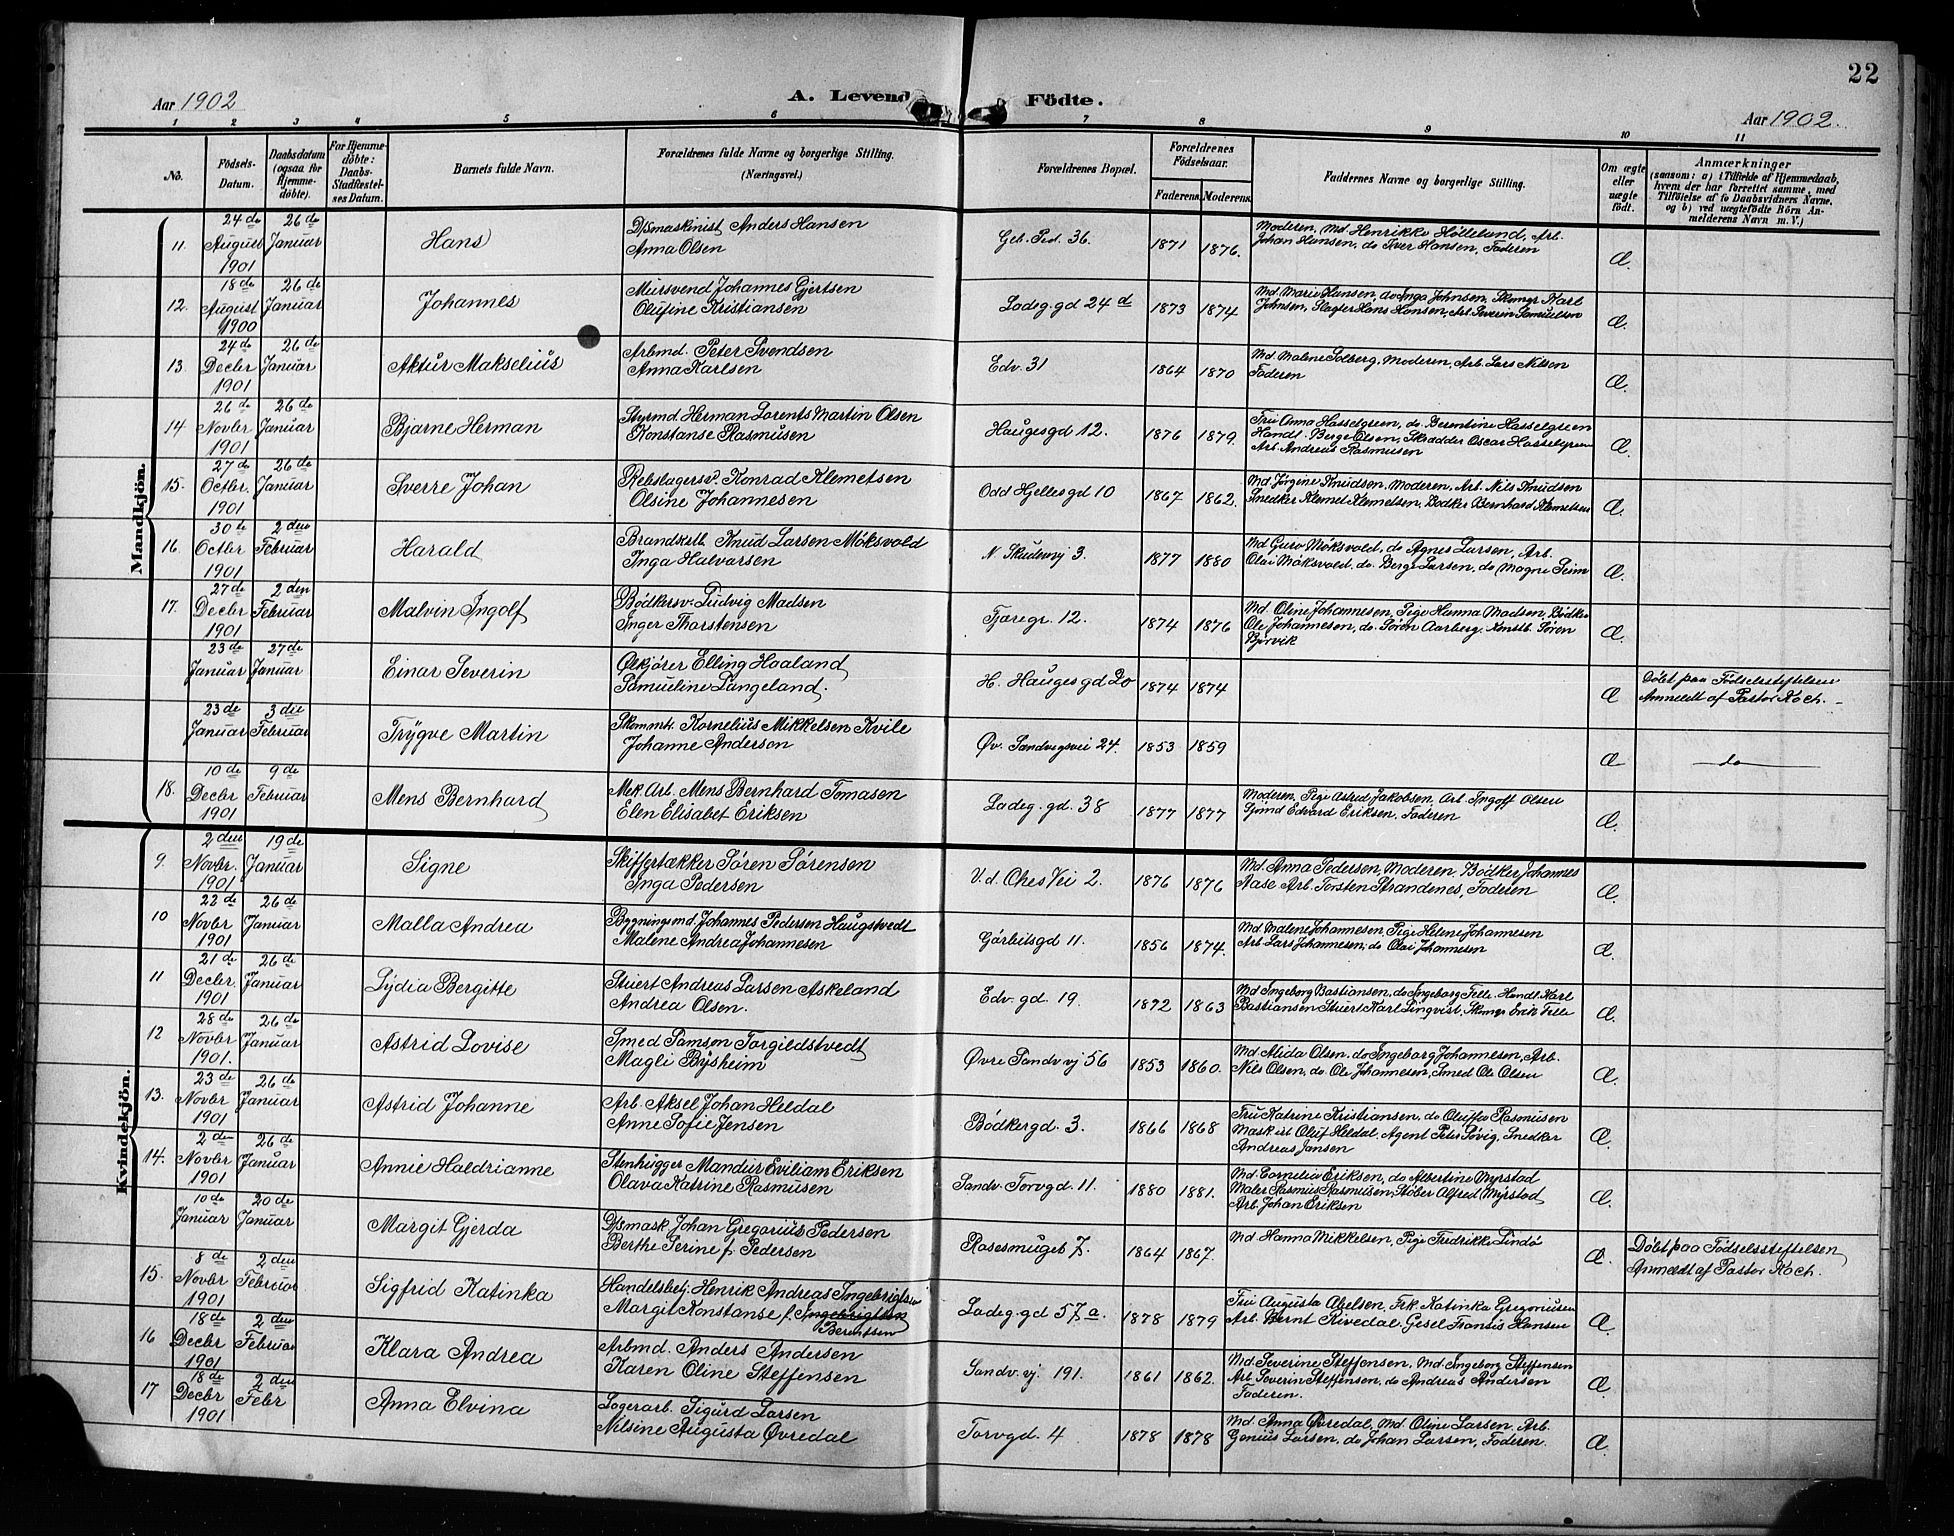 22
Aar 1902
A. Levend Födte.
Aar 1902.
1 2 3 4 5 6 7 8 9 10 11
No.
Födsels-Datum.
Daabsdatum (ogsaa for Hjemmedöbte).
For Hjemmedöbte: Daabs-Stadfæstelses Datum.
Barnets fulde Navn.
Forældrenes fulde Navne og borgerlige Stilling.
(Næringsvei.)
Forældrenes Bopæl.
Forældrenes Födselsaar.
Faderens. Moderens.
Faddernes Navne og borgerlige Stilling.
Om ægte eller uægte födt.
Anmærkninger
(saasom: a) i Tilfælde af Hjemmedaab, hvem der har forrettet samme, med Tilföielse af to Daabsvidners Navne, og b) ved uægtefödte Börn Anmelderens Navn m. V.)
Mandkjön.
11. 24de August 1901 26de Januar Hans
D/smaskinist Anders Hansen
Anna Olsen
Geb. Ped. 36. 1871 1876.
Moderen, Md. Henrikke Hölleland, Arb.
Johan Hansen, do Iver Hansen, Faderen
Æ.
12. 18de August 1900 26de Januar Johannes
Mursvend Johannes Gjertsen
Olufine Kristiansen
Ladeg. gd 24 d 1873 1874
Md. Marie Hansen, do Inga Johnsen, Skomgr Karl
Johnsen, Slagter Hans Hansen, Arb. Severin Samuelsen
Æ.
13. 24de Decbr 1901 26de Januar Aktur Makselius
Arbmd. Peter Svendsen
Anna Karlsen
Edv. 31 1864 1870
Md. Malene Solberg, Moderen, Arb. Lars Nilsen
Faderen
Æ.
14 26de Novbr 1901 26de Januar Bjarne Herman
Styrmd Herman Lorents Martin Olsen
Konstanse Rasmusen
Haugesgd 12. 1876 1879.
Fru Anna Hasselgreen, do Berentine Hasselgreen
Handl. Berge Olsen, Skrædder Oscar Hasselgren
Arb. Andreas Rasmusen
Æ.
15. 27de Octbr. 1901 26de Januar Sverre Johan
Rebslagersv. Konrad Klemetsen
Olsine Johannesen
Odd Hjellesgd 10 1867 1862.
Md Jørgine Knudsen, Moderen, Arb. Nils Knudsen
Snedker Klemet Klemetsen, Bødker Bernhard Klemetsen
Æ.
16. 30te Octbr 1901 2den Februar Harald
Brandkstb. Knud Larsen Møksvold
Inga Halvorsen
N. Skudevy 3. 1877 1880
Md Guro Møksvold, do Agnes Larsen, Arb.
Olai Møksvold, do. Berge Larsen, do Mogne Seim
Æ.
17. 27de Decbr 1901 2den Februar Malvin Ingolf
Bødkersv. Ludvig Madsen
Inger Thorstensen
Tjæregr. 12. 1874 1876
Md. Oline Johannesen, Pige Hanna Madsen, Bødker
Ole Johannesen, do. Søren Aarberg, Konstb. Søren
Bjørvik
Æ.
23de Januar 27de Januar Einar Severin
Ølkjører Elling Haaland
Samueline Langeland.
H. Hauges gd 20 1874 1874
Æ
Døbt paa Fødselsstiftelsen
Anmeldt af Pastor Koch.
23de Januar 3die Februar Trygve Martin
Skommtr. Kornelius Mikkelsen Kvile
Johanne Anderson
Øv. Sandvigsvei 24. 1853 1859
Æ
do
18. 10de Decbr 1901 9de Februar Mens Bernhard
Mek. Arb. Mens Bernhard Tomasen
Elen Elisabet Eriksen
Ladeg. gd. 38 1877 1877
Moderen, Pige Astrid Jakobsen, Arb. Ingolf Olsen
Sjømd Edvard Eriksen, Faderen
Æ.
Kvindekjön.
9. 2den Novbr. 1901 19de Januar Signe
Skiffertækker Søren Sørensen
Inga Pedersen
V. d. Ohes Vei 2. 1876 1876
Md. Anna Pedersen, Moderen, Bødker Johannes
Aase Arb. Torsten Strandenes, Faderen
Æ.
10 22de Novbr 1901 26de Januar Malla Andrea
Bygningsmd. Johannes Pedersen Haugstvedt
Malene Andrea Johannesen
Görbitsgd 11. 1856 1874.
Md Malene Johannesen, Pige Helene Johannesen
Arb Lars Johannesen, do Olai Johannesen
Æ.
11 21de Decbr. 1901 26de Januar Lydia Bergitte
Stuert Andreas Larsen Askeland
Andrea Olsen.
Edv. gd. 19. 1872 1863
Md Ingeborg Bastiansen, do Ingeborg Felle, Handl. Karl
Bastiansen Stuert Karl Linqvist, Skomgr Erik Felle
Æ.
12 28de Novbr 1901. 26de Januar Astrid Lovise
Smed Samson Torgildstvedt
Magli Bysheim
Øvre Sandv vj 56 1853 1860.
Md Alida Olsen, do Ingeborg Johannesen, Arb.
Nils Olsen, do. Ole Johannesen, Smed Ole Olsen
Æ.
13. 23de Novbr 1901 26de Januar Astrid Johanne
Arb. Aksel Johan Heldal
Anne Sofie Jensen
Bödkergd. 3. 1866 1868
Fru Katrine Kristiansen, do Oluffa Rasmusen
Maskist Oluf Heldal, Agent Peter Søvig, Snedker
Andreas Jansen
Æ.
14. 2den Novbr 1901 26de Januar Annie Haldrianne
Stenhugger Mandur Eviliam Eriksen
Olava Katrine Rasmusen
Sandv. Torvgd. 11. 1880 1881.
Md. Cornelia Eriksen, do Albertine Myrstad
Maler Rasmus Rasmusen, Støber Alfred Myrstad
Arb. Johan Eriksen
Æ.
10de Januar 20de Januar Margit Gjerda
D/smask Johan Gregorius Pedersen
Berthe Serine f. Pedersen
Rosesmuget 7. 1864 1867.
Md. Hanna Mikkelsen, Pige Fredrikke Lindö
Æ.
Døbt paa Fødselsstiftelsen
Anmeldt af Pastor Koch.
15. 8de Novbr 1901 2den Februar Sigfrid Katinka
Handelsbetj. Henrik Andreas Ingebrigtsen
Margit Konstanse f. Ingebrigtsen
Berentsen
Ladeg. gd 57 a. 1878 1879
Fru Augusta Abelsen, Frk. Katinka Gregoriusen
Arb. Bernt Rivedal, Gesel Fransis Hansen
Æ
16 18de Decbr 1901 2den Februar Klara Andrea
Arbmd. Anders Andersen
Karen Oline Steffensen
Sandv. vj. 191. 1861 1862.
Md. Severine Steffensen, Md. Ingeborg Steffensen
Arb. Severin Steffensen, do Andreas Andersen
Faderen.
Æ.
17 18de Decbr 1901 2den Febr Anna Elvina
Logerarb. Sigurd Larsen
Nilsine Augusta Øvredal
Torvgd. 4 1878 1878
Md. Anna Øvredal, Md. Oline Larsen, Arb.
Genius Larsen, do Johan Larsen, Faderen.
Æ.